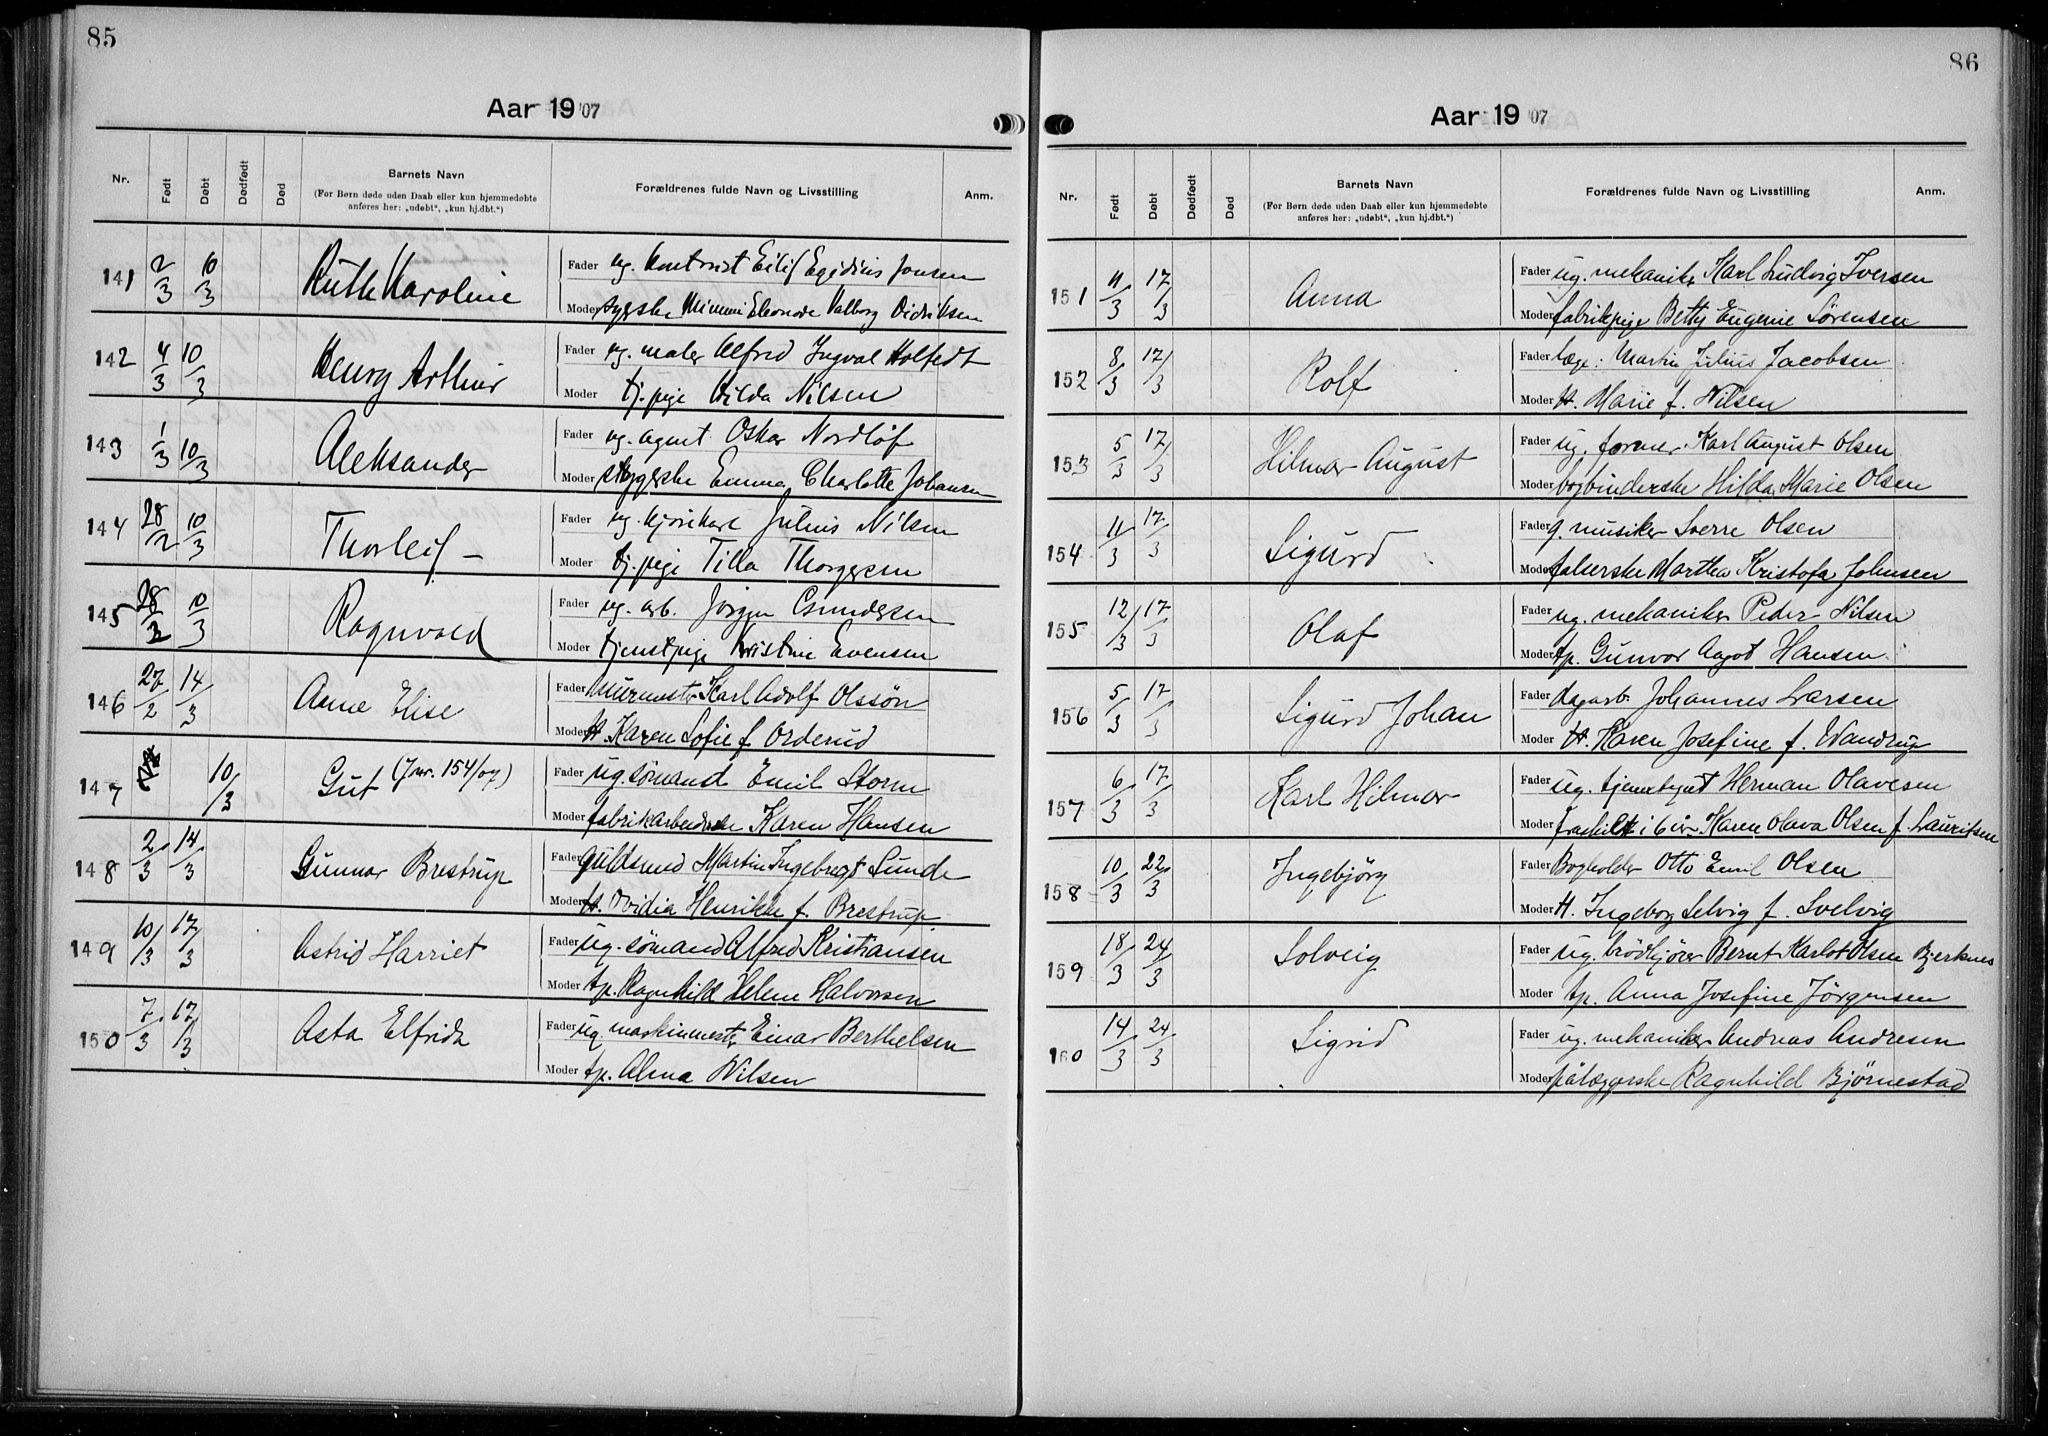 85
Aar 1907
Nr.
Født
Døbt
Dødfødt
Død
Barnets Navn
(For Børn døde uden Daab eller kun hjemmedøbte
anføres her: „udøbt“, „kun hj.dbt.“)
Forældrenes fulde Navn og Livsstilling
Anm.
141 2/3 10/3 Ruth Karoline Fader ug. kontorist Eilif Egidius Jonsen
Moder syerske Mimmi Eleonore Valborg Didriksen
142 4/3 10/3 Henry Arthur Fader ug. maler Alfred Ingval Holfedt
Moder tj. pige Hilda Nilsen
143 1/3 10/3 Aleksander Fader ug. agent Oskar Nordløf
Moder Emma Charlotte Johansen
144 28/2 10/3 Thorleif – Fader ug. kjørekarl Julius Nilsen
Moder tj. pige Tilla Thorgersen
145 28/2 10/3 Ragnvald Fader ug. arb. Jørgen Gundersen
Moder tjenestpige Kristine Evensen
146 27/2 14/3 Anne Elise Fader murmestr Karl Adolf Olssøn
Moder H. Karen Sofie f. Orderud
147 10/3 Gut (Jnr. 154/07) Fader ug. sømand Emil Storm
Moder fabrikarbeiderske Karen Hansen
148 2/3 14/3 Gunnar Brestrup Fader guldsmed Martin Ingebregt Sunde
Moder H. Ovidia Henrikke f. Brestrup.
149 10/3 17/3 Astrid Harriet Fader ug. sømand Alfred Kristiansen
Moder tp. Ragnhild Helene Halvorsen
150 7/3 17/3 Asta Elfrida Fader ug. maskinmestr Einar Berthelsen
Moder tp. Alma Nilsen
86
Aar 1907
Nr.
Født
Døbt
Dødfødt
Død
Barnets Navn
(For Børn døde uden Daab eller kun hjemmedøbte
anføres her: „udøbt“, „kun hj.dbt.“)
Forældrenes fulde Navn og Livsstilling
Anm.
151 4/3 17/3 Anna Fader ug. mekanikr Karl Ludvig Iversen
Moder fabrikpige Betty Eugenie Sørensen
152 8/3 17/3 Rolf Fader læge: Martin Julius Jacobsen
Moder H. Marie f. Nilsen
153 5/3 17/3 Hilmar August Fader ug. former Karl August Olsen
Moder bogbinderske Hilda Marie Olsen
154 11/3 17/3 Sigurd Fader g. musiker Sverre Olsen
Moder falserske Martha Kristofa Johnsen
155 12/3 17/3 Olaf Fader ug. mekaniker Peder Nilsen
Moder tp. Gunvor Aagot Hansen
156 5/3 17/3 Sigurd Johan Fader dagarb. Johannes Larsen
Moder H. Karen Josefine f. Wandrup
157 6/3 17/3 Karl Hilmar Fader ug. tjenestegut Herman Olavesen
Moder fraskilt i 6 år Karen Olava Olsen f. Lauritsen
158 10/3 22/3 Ingebjørg Fader Bogholder Otto Emil Olsen
Moder H. Ingeborg Selvig f. Svelvig
159 18/3 24/3 Solveig Fader ug. brødkjører Bernt Karlot Olsen Bjerknes
Moder tp. Anna Josefine Jørgensen
160 14/3 24/3 Sigrid Fader ug. mekaniker Andreas Andresen
Moder pålæggerske Ragnhild Bjørnestad